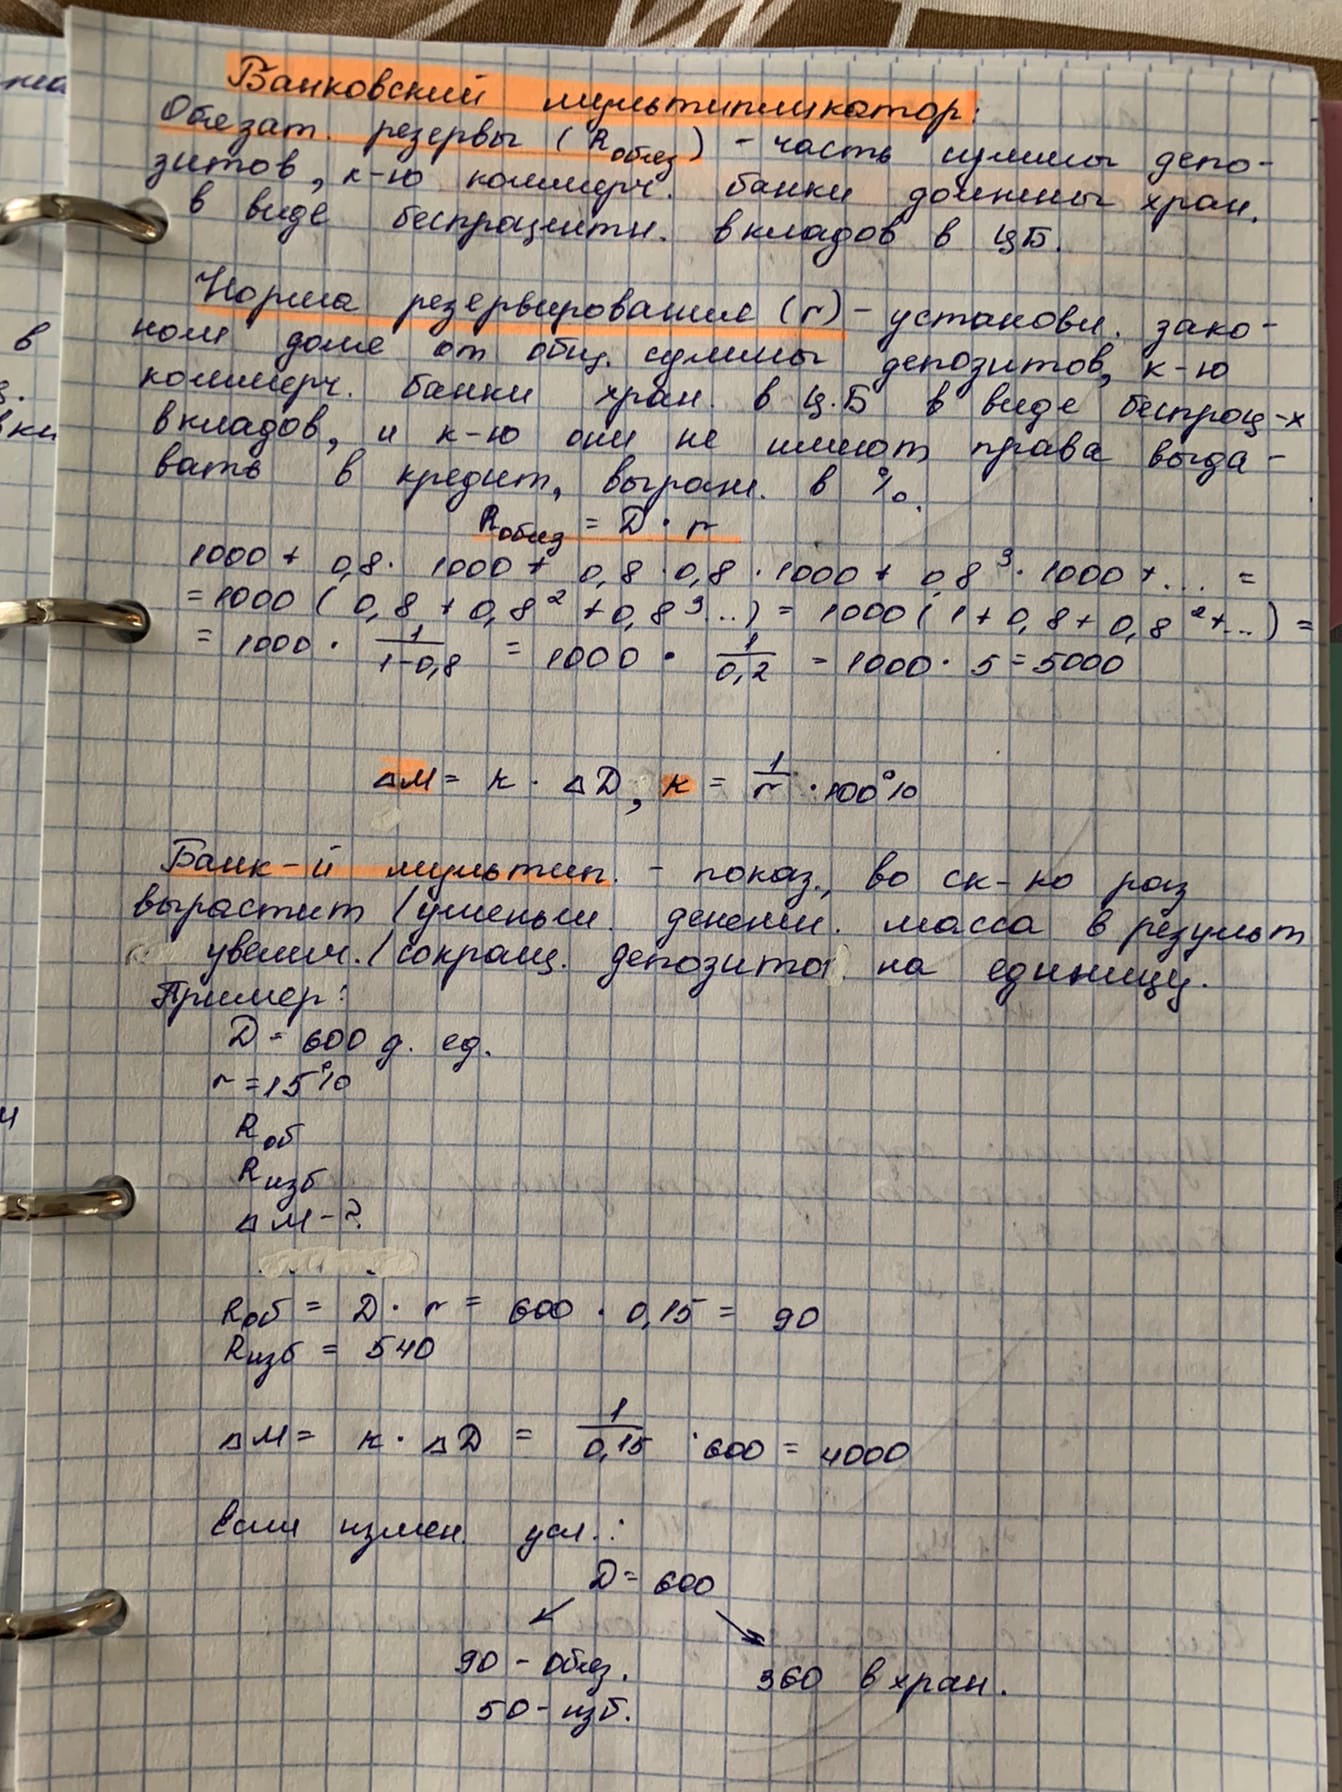 Банковский мультипликатор:
Обязат. резервы (Rобяз) - часть суммы депо-
зитов, к-ю коммерч. банки должны хран.
в виде беспроцентн. вкладов в ЦБ.
Норма резервирования (r) - установл. зако-
ном доля от общ. суммы депозитов, к-ю
коммерч. банки хран. в Ц.Б в виде беспроц-х
вкладов, и к-ю они не имеют права выда-
вать в кредит, выраж. в %.
Rобяз = D · r
1000 + 0,8 · 1000 + 0,8 · 0,8 · 1000 + 0,8³ · 1000 + ... =
= 1000 ( 0,8 + 0,8² + 0,8³...) = 1000 ( 1 + 0,8 + 0,8² + ...) =
= 1000 · 1/1-0,8 = 1000 · 1/0,2 = 1000 · 5 = 5000
ΔM = к · ΔD, к = 1/r · 100%
Банк-й мультип. - показ., во ск-ко раз
вырастит /уменьш. денежн. масса в результ
увелич. /сокращ. депозита на единицу.
Пример:
D = 600 д. ед.
r = 15%
Rоб
Rизб
ΔM - ?
Rоб = D · r = 600 · 0,15 = 90
Rизб = 540
ΔM = к · ΔD = 1/0,15 · 600 = 4000
Если измен. усл.:
D = 600
90 - Обяз. 360 в хран.
50 - изб.